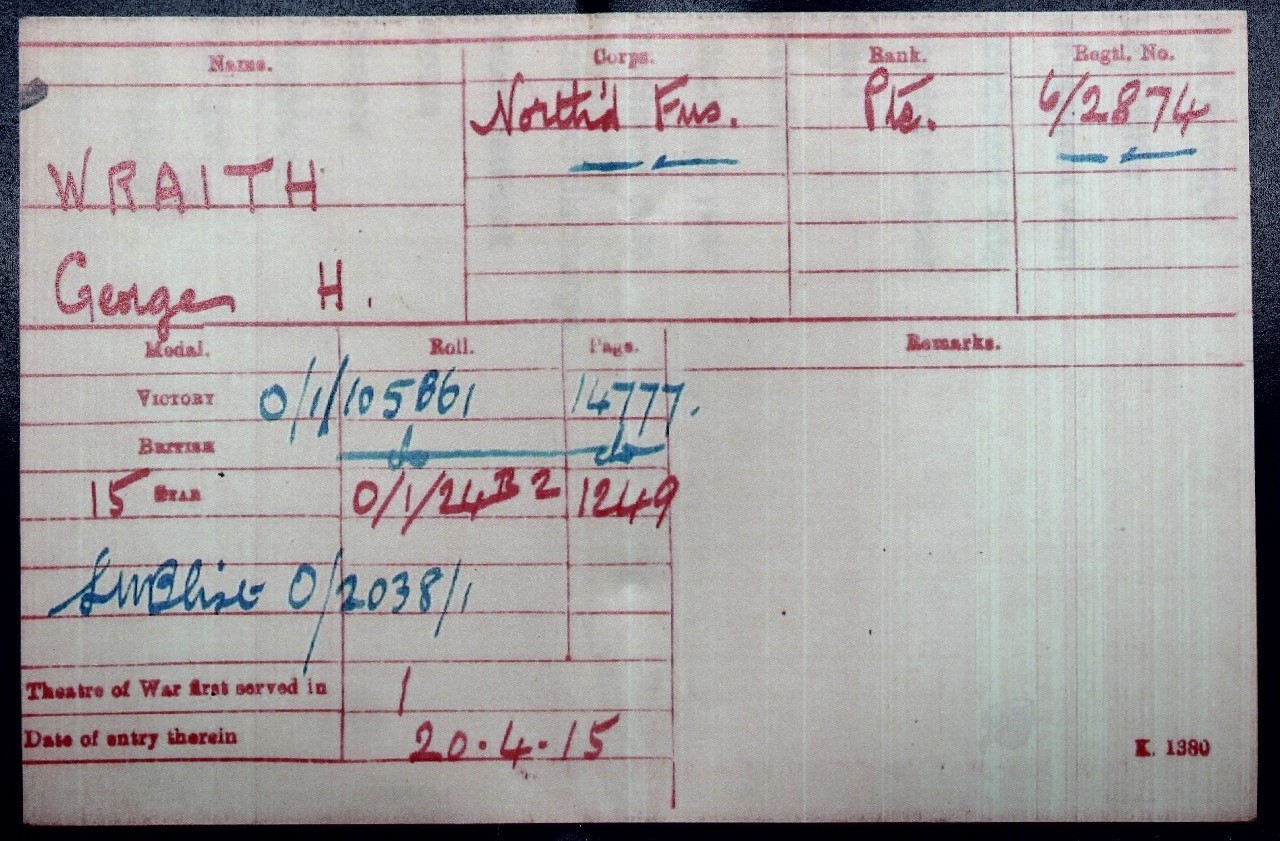 Name. Corps. Rank. Regtl. No.
WRAITH North'd Fus. Pte. 6/2874
George H.
Medal. Roll. Page. Remarks.
VICTORY 0/1/105B61 14777.
BRITISH do do
15 STAR 0/1/24B2 1249
SWBlist 0/2038/1
Theatre of War first served in 1
Date of entry therein 20.4.15
K. 1380